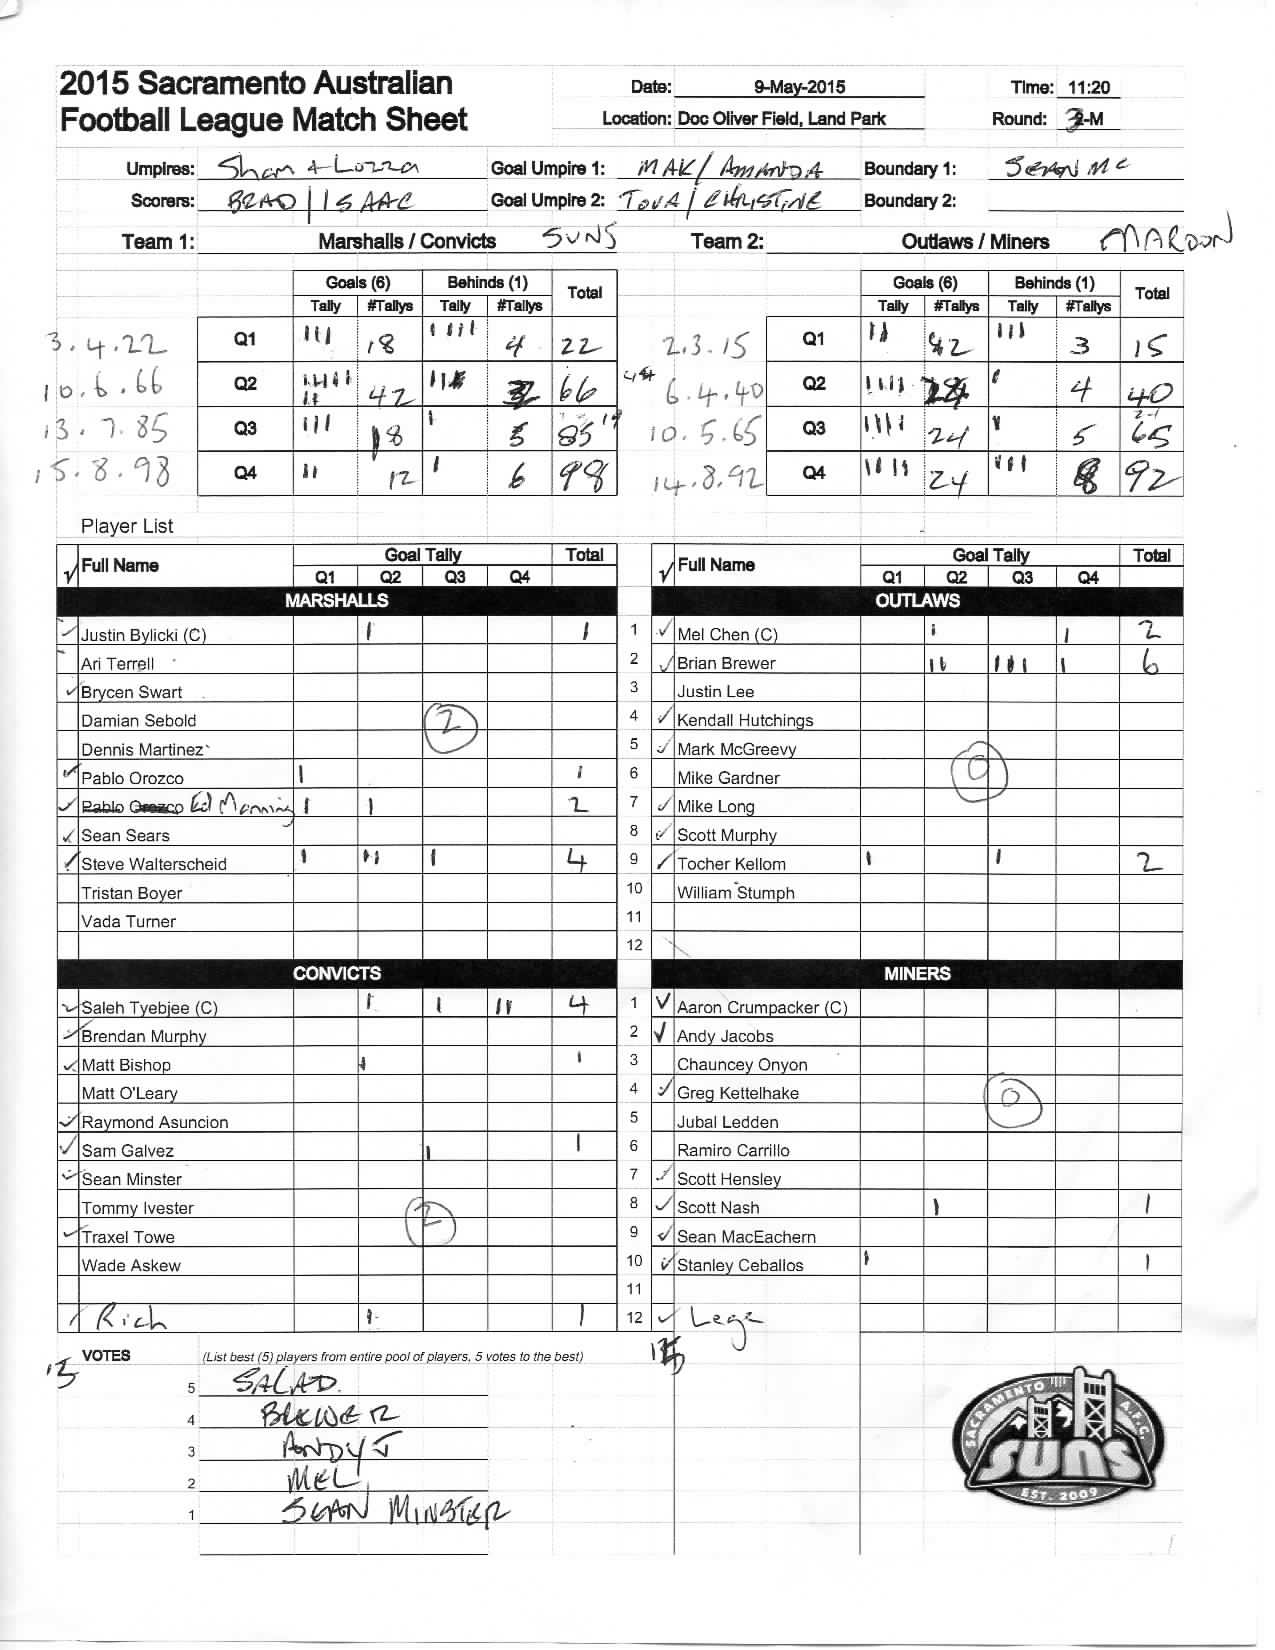 2015 Sacramento Australian Football League Match Sheet
Date: 9-May-2015 Time: 11:20
Location: Doc Oliver Field, Land Park Round: 3-M
Umpires: Sham & Lozza Goal Umpire 1: MAK / AMANDA Boundary 1: SEAN MC
Scorers: BRAD / ISAAC Goal Umpire 2: TOVA / CHRISTINE Boundary 2:
Team 1: Marshalls / Convicts SUNS Team 2: Outlaws / Miners MAROON
Goals (6) Behinds (1) Total Goals (6) Behinds (1) Total
Tally #Tallys Tally #Tallys Tally #Tallys Tally #Tallys
3.4.22 Q1 III 18 IIII 4 22 2.3.15 Q1 II 12 III 3 15
10.6.66 Q2 42 66 6.4.40 Q2 IIII 24 I 4 40
13.7.85 Q3 III 18 I 5 85 19 10.5.65 Q3 IIII 24 I 5 65
15.8.98 Q4 II 12 I 6 98 14.8.92 Q4 IIII 24 III 8 92
Player List
Full Name Goal Tally Total Full Name Goal Tally Total
Q1 Q2 Q3 Q4 Q1 Q2 Q3 Q4
MARSHALLS OUTLAWS
✓ Justin Bylicki (C) I I 1 ✓ Mel Chen (C) I I 2
Ari Terrell 2 ✓ Brian Brewer II III I 6
✓ Brycen Swart 3 Justin Lee
Damian Sebold 2 4 ✓ Kendall Hutchings
Dennis Martinez 5 ✓ Mark McGreevy
✓ Pablo Orozco I I 6 Mike Gardner 0
✓ Pablo Orozco Ed Manning I I 2 7 ✓ Mike Long
✓ Sean Sears 8 ✓ Scott Murphy
✓ Steve Walterscheid I II I 4 9 ✓ Tocher Kellom I I 2
Tristan Boyer 10 William Stumph
Vada Turner 11
12
CONVICTS MINERS
✓ Saleh Tyebjee (C) I I II 4 1 ✓ Aaron Crumpacker (C)
✓ Brendan Murphy 2 ✓ Andy Jacobs
✓ Matt Bishop I I 3 Chauncey Onyon
Matt O'Leary 4 ✓ Greg Kettelhake 0
✓ Raymond Asuncion 5 Jubal Ledden
✓ Sam Galvez I I 6 Ramiro Carrillo
✓ Sean Minster 7 ✓ Scott Hensley
Tommy Ivester 2 8 ✓ Scott Nash I I
✓ Traxel Towe 9 ✓ Sean MacEachern
Wade Askew 10 ✓ Stanley Ceballos I I
11
✓ Rich I I 12 ✓ Lege
13 VOTES (List best (5) players from entire pool of players, 5 votes to the best)
5 SALAD
4 BREWER
3 ANDY J
2 MEL
1 SEAN MINSTER
SACRAMENTO A.F.C.
SUNS
EST. 2009